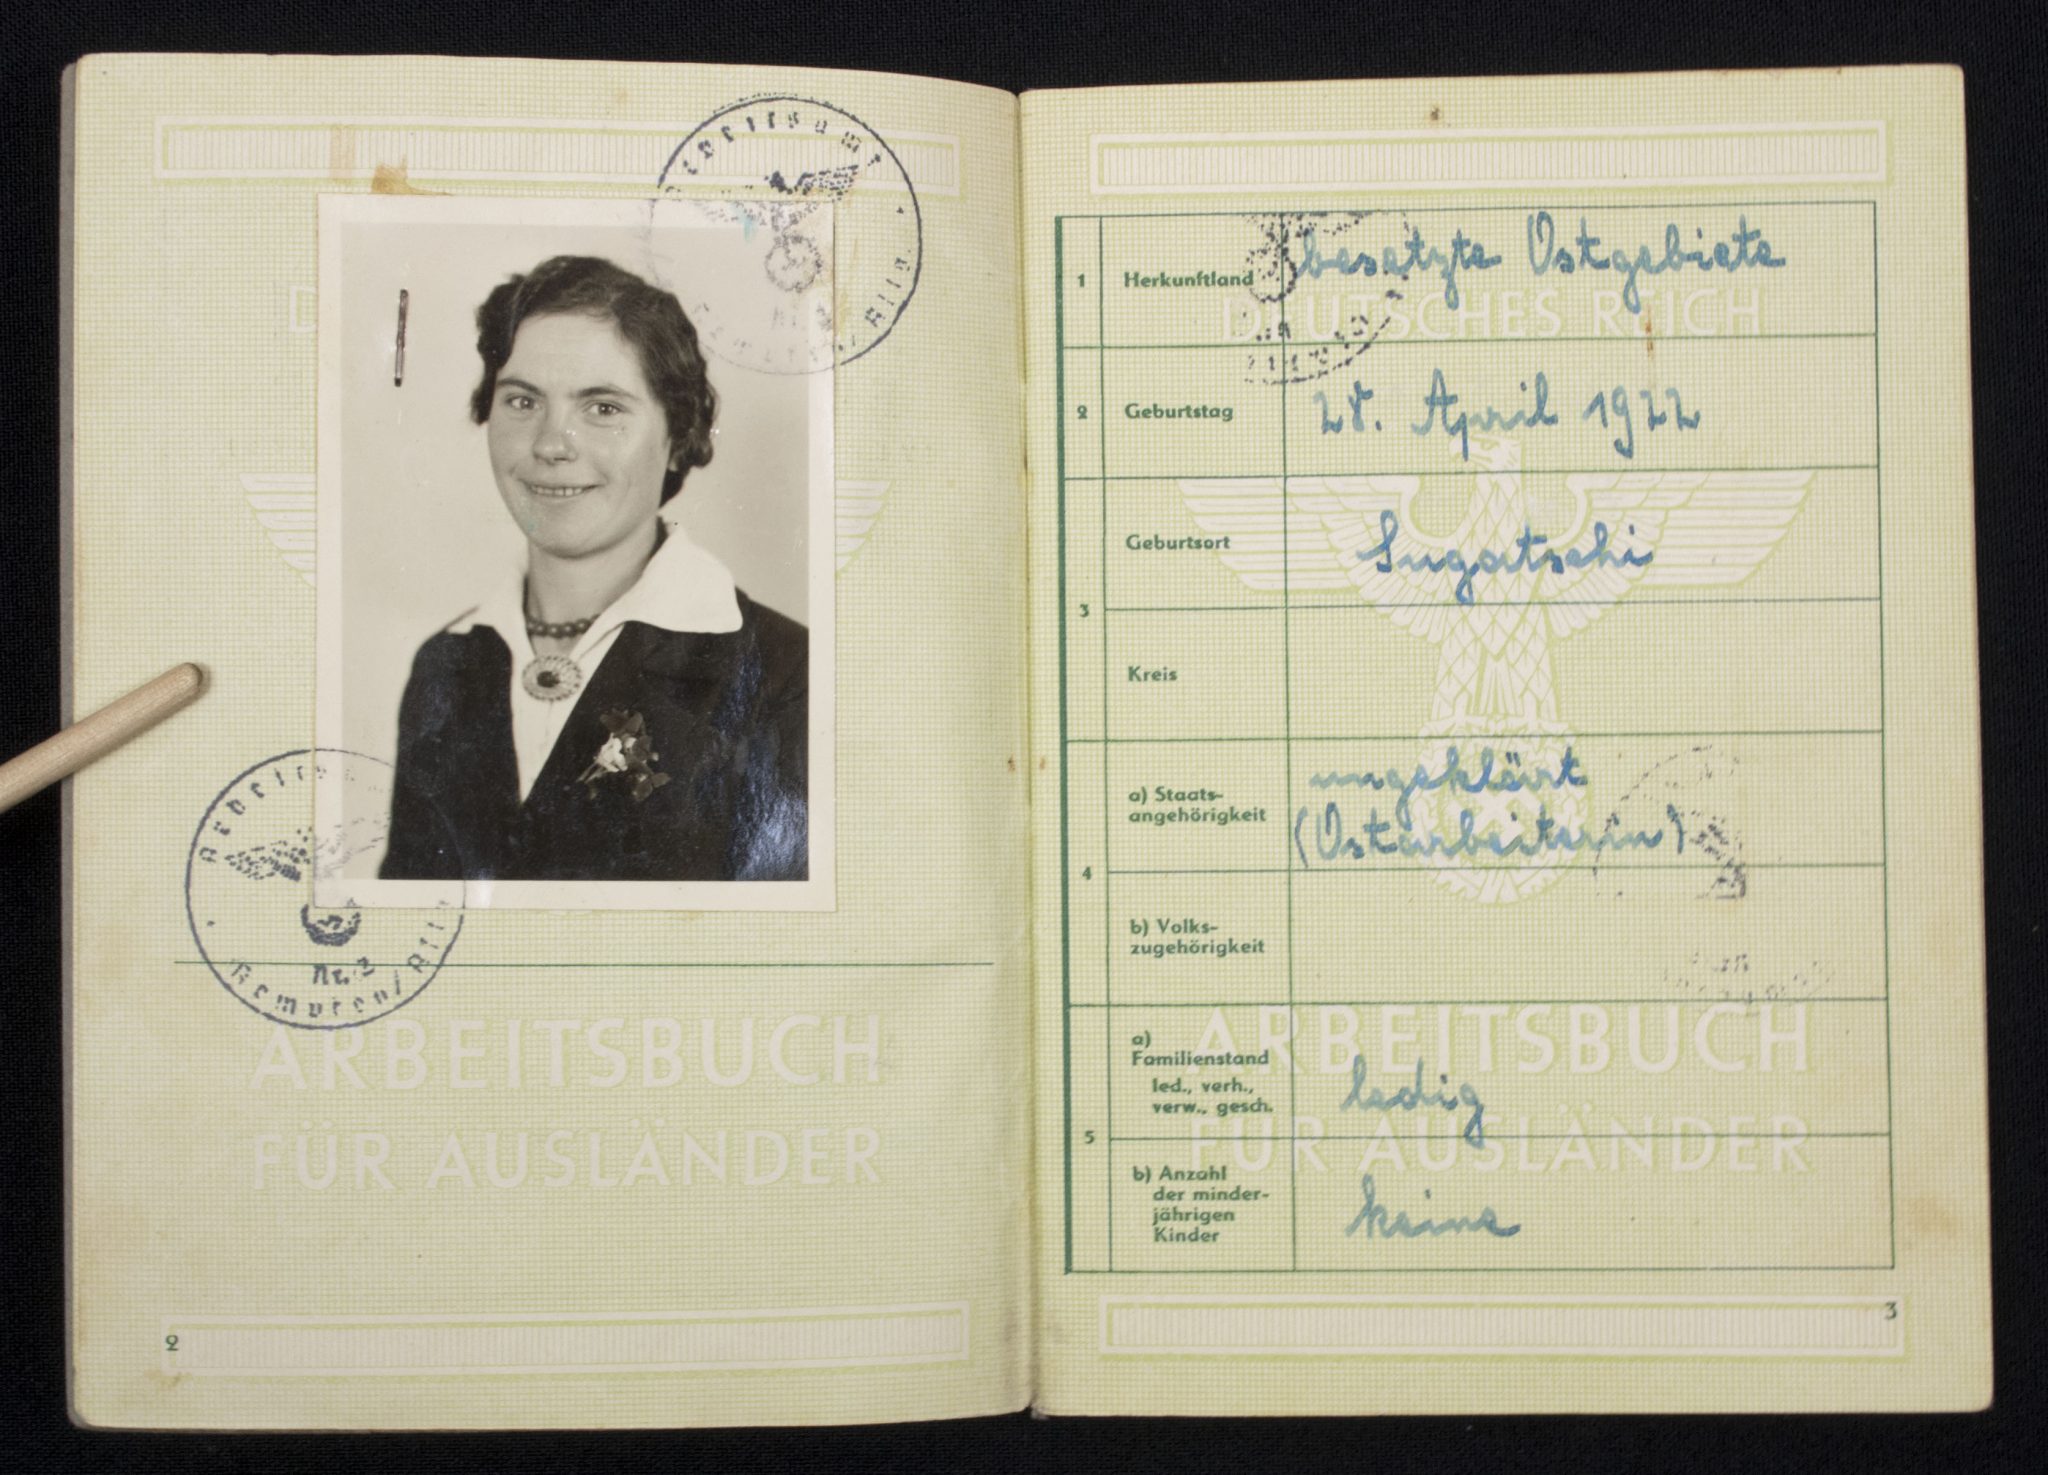 Arbeitsamt
Kempten/Allg
Arbeitsamt
Nr. 2
Kempten/Allg
ARBEITSBUCH
FÜR AUSLÄNDER
2
DEUTSCHES REICH
1 Herkunftland besetzte Ostgebiete
2 Geburtstag 28. April 1922
3
Geburtsort Sugatschi
Kreis
4
a) Staats-
angehörigkeit
ungeklärt
(Ostarbeiterin)
b) Volks-
zugehörigkeit
5
a)
Familienstand
led., verh.,
verw., gesch.
ledig
b) Anzahl
der minder-
jährigen
Kinder
keine
ARBEITSBUCH
FÜR AUSLÄNDER
3